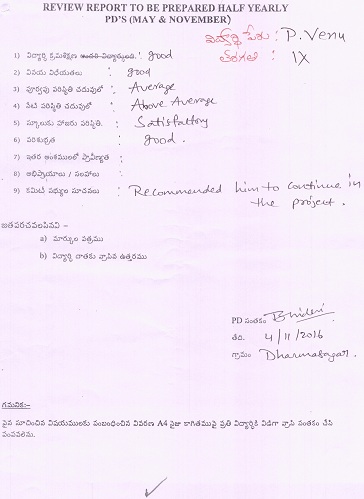 REVIEW REPORT TO BE PREPARED HALF YEARLY
PD'S (MAY & NOVEMBER)
విద్యార్థి పేరు : P. Venu
తరగతి : IX
1) విద్యార్థి క్రమశిక్షణ : good
2) విషయ విధేయతలు : good
3) పూర్వపు పరిస్థితి చదువులో : Average
4) నేటి పరిస్థితి చదువులో : Above Average
5) స్కూలుకు హాజరు పరిస్థితి. : Satisfactory
6) పరిశుభ్రత : good.
7) ఇతర అంశములలో ప్రావీణ్యత :
8) అభిప్రాయాలు / సలహాలు :
9) కమిటీ పెద్దల సూచనలు : Recommended him to continue in
the project.
జతపరచవలసినవి –
a) మార్కుల పత్రము
b) విద్యార్థి దాతకు వ్రాసిన ఉత్తరము
PD సంతకం
తేది. 4/11/2016
గ్రామం Dharmasagar.
గమనిక:-
పైన సూచించిన విషయములకు సంబంధించిన వివరణ A4 సైజు కాగితముపై ప్రతి విద్యార్థికి విడిగా వ్రాసి సంతకం చేసి
పంపవలెను.